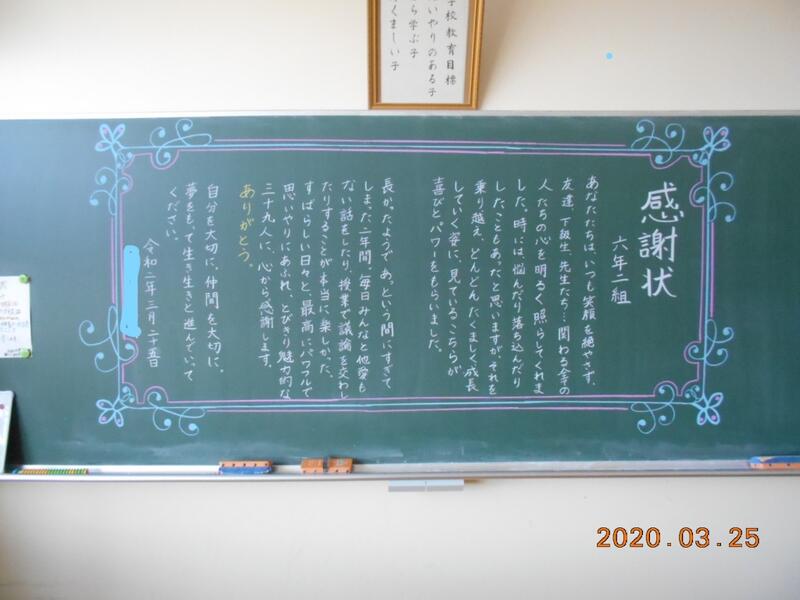 学校教育目標
いやりのある子
ら学ぶ子
くましい子
感謝状
六年二組
あなたたちは、いつも笑顔を絶やさず、
友達、下級生、先生たち…関わる全ての
人たちの心を明るく照らしてくれま
した。時には、悩んだり落ち込んだり
したこともあったと思いますが、それを
乗り越え、どんどんたくましく成長
していく姿に、見ているこちらが
喜びとパワーをもらいました。
長かったようであっという間にすぎて
しまった二年間。毎日みんなと他愛も
ない話をしたり、授業で議論を交わし
たりすることが本当に楽しかった。
すばらしい日々と、最高にパワフルで
思いやりにあふれ、とびきり魅力的な
三十九人に、心から感謝します。
ありがとう。
自分を大切に、仲間を大切に、
夢をもって生き生きと進んでいって
ください。
令和二年三月二十五日
2020.03.25